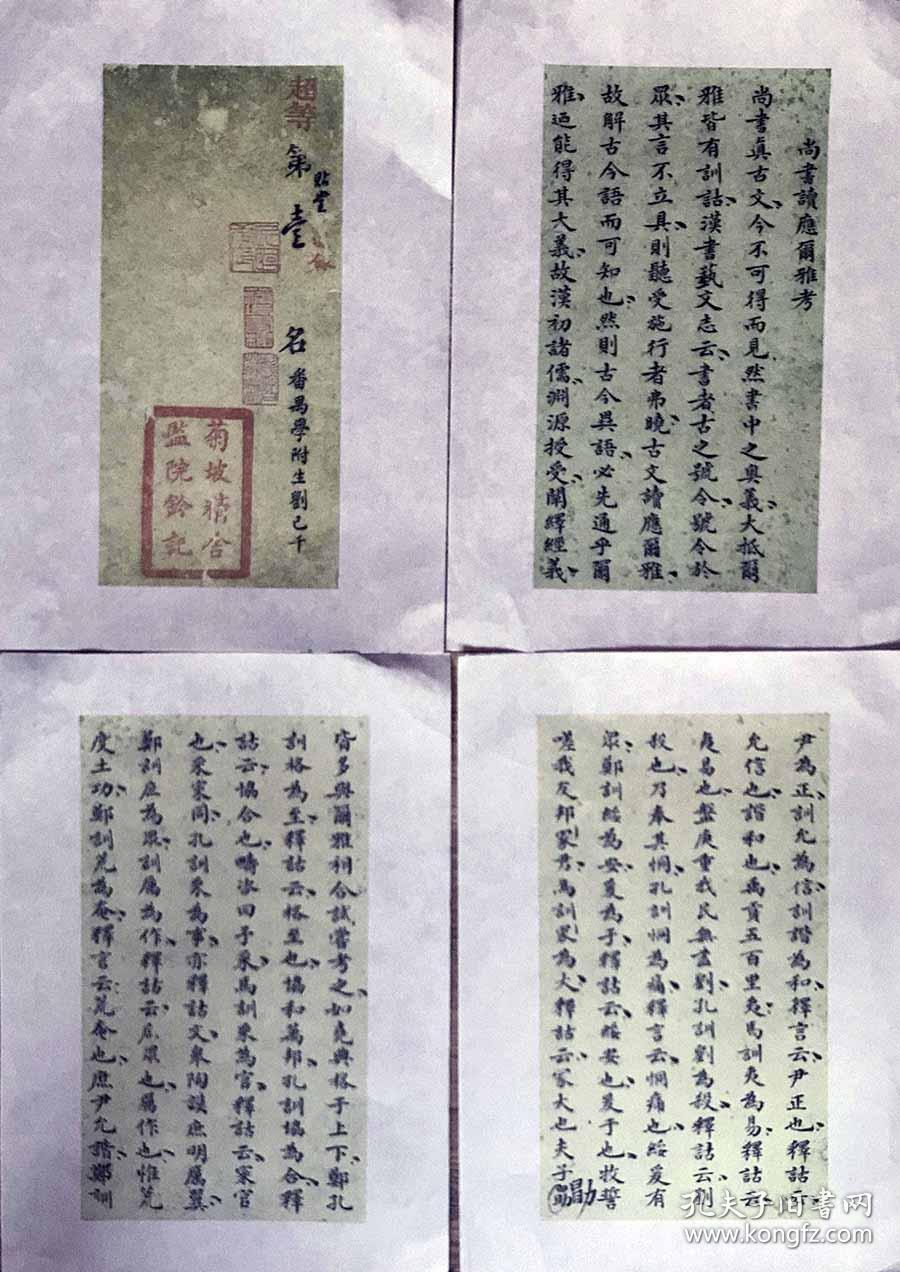 超等
貼堂
第壹
名
番禺學附生劉己千
菊坡精舍
監院鈐記
尚書讀應爾雅考
尚書真古文今不可得而見然書中之奧義大抵爾
雅皆有訓詁漢書藝文志云書者古之號令號令於
眾其言不立具則聽受施行者弗曉古文讀應爾雅
故解古今語而可知也然則古今異語必先通乎爾
雅迺能得其大義故漢初諸儒淵源授受闡繹經義
皆多與爾雅相合試嘗考之如堯典格于上下鄭孔
訓格為至釋詁云格至也協和萬邦孔訓協為合釋
詁云協合也疇咨曰予采馬訓采為官釋詁云寀官
也采寀同孔訓采為事亦釋詁文皋陶謨庶明厲翼
鄭訓庶為眾訓厲為作釋詁云庶眾也厲作也惟荒
度土功鄭訓荒為奄釋言云荒奄也庶尹允諧鄭訓
尹為正訓允為信訓諧為和釋言云尹正也釋詁云
允信也諧和也禹貢五百里夷馬訓夷為易釋詁云
夷易也盤庚重我民無盡劉孔訓劉為殺釋詁云劉
殺也乃奉其恫孔訓恫為痛釋言云恫痛也綏爰有
眾鄭訓綏為安爰為于釋詁云綏安也爰于也牧誓
嗟我友邦冢君馬訓冢為大釋詁云冢大也夫子勖
勖
孔夫子旧書网
www.kongfz.com